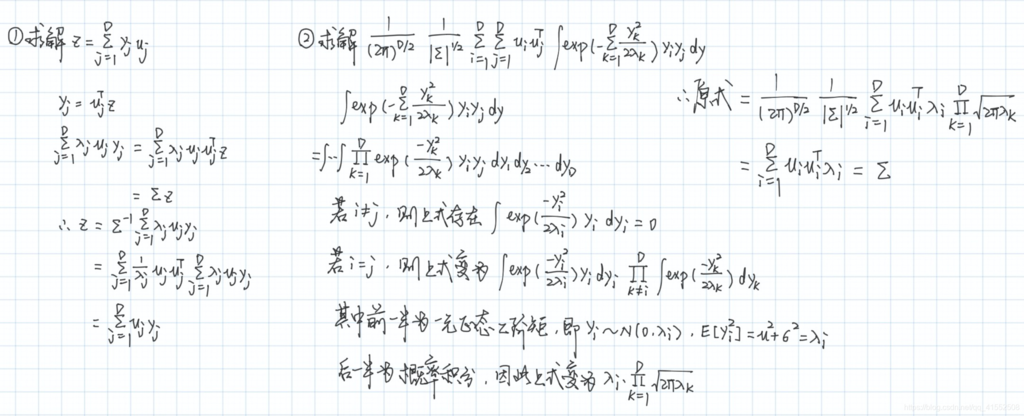 ①求解 z = ∑_{j=1}^{D} y_j u_j
y_j = u_j^T z
∑_{j=1}^{D} λ_j u_j y_j = ∑_{j=1}^{D} λ_j u_j u_j^T z
= Σ z
∴ z = Σ^{-1} ∑_{j=1}^{D} λ_j u_j y_j
= ∑_{j=1}^{D} \frac{1}{λ_j} u_j u_j^T ∑_{j=1}^{D} λ_j u_j y_j
= ∑_{j=1}^{D} u_j y_j
②求解 \frac{1}{(2π)^{D/2}} \frac{1}{|Σ|^{1/2}} ∑_{i=1}^{D} ∑_{j=1}^{D} u_i u_j^T ∫exp(-∑_{k=1}^{D} \frac{y_k^2}{2λ_k}) y_i y_j dy
∫exp(-∑_{k=1}^{D} \frac{y_k^2}{2λ_k}) y_i y_j dy
=∫⋯∫ ∏_{k=1}^{D} exp(\frac{-y_k^2}{2λ_k}) y_i y_j dy_1 dy_2 ⋯ dy_D
若i≠j,则上式存在 ∫ exp(\frac{-y_i^2}{2λ_i}) y_i dy_i = 0
若i=j,则上式变为 ∫exp(\frac{-y_i^2}{2λ_i}) y_i dy_i ∏_{k≠i}^{D} ∫exp(\frac{-y_k^2}{2λ_k}) dy_k
其中前一半为一元正态二阶矩,即 y_i ~ N(0,λ_i),E[y_i^2] = u^2+6^2 = λ_i
后一半为概率积分,因此上式变为 λ_i · ∏_{k=1}^{D} \sqrt{2πλ_k}
∴原式 = \frac{1}{(2π)^{D/2}} \frac{1}{|Σ|^{1/2}} ∑_{i=1}^{D} u_i u_i^T λ_i ∏_{k=1}^{D} \sqrt{2πλ_k}
= ∑_{i=1}^{D} u_i u_i^T λ_i = Σ